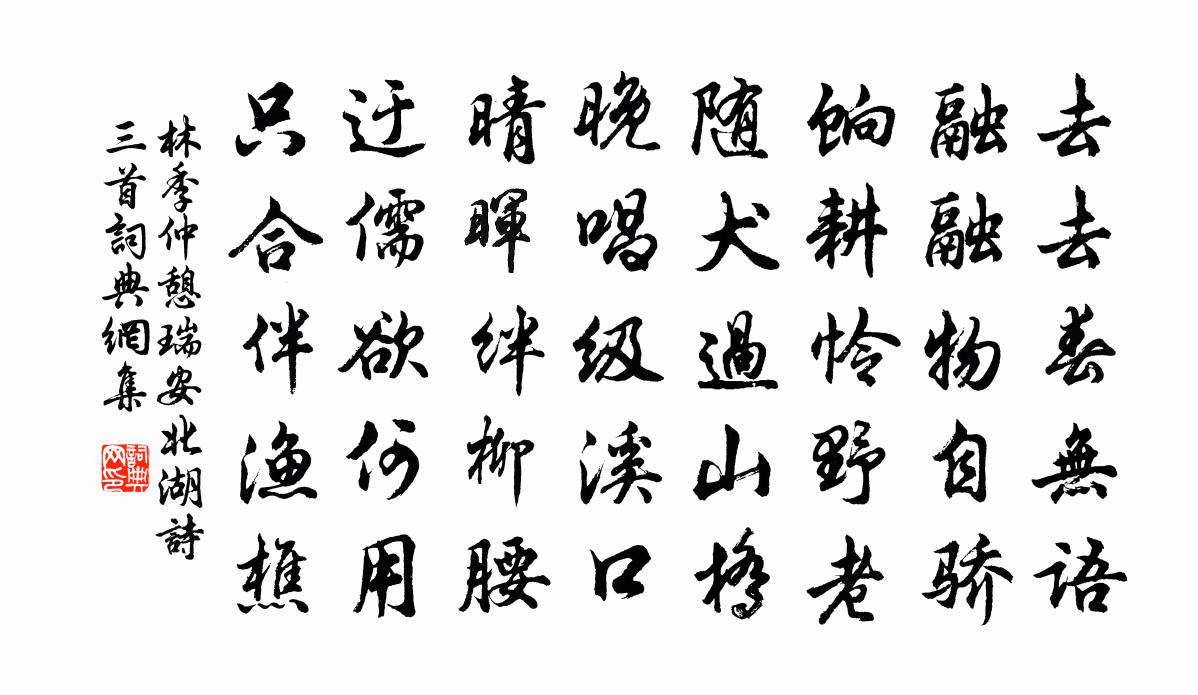 去去春無語
融融物自骄
餉耕怜野老
随犬過山橋
晚唱级溪口
晴暉絆柳腰
迂儒欲何用
只合伴漁樵
林季仲憩瑞安北湖詩
三首詞典網集
詞典
网印